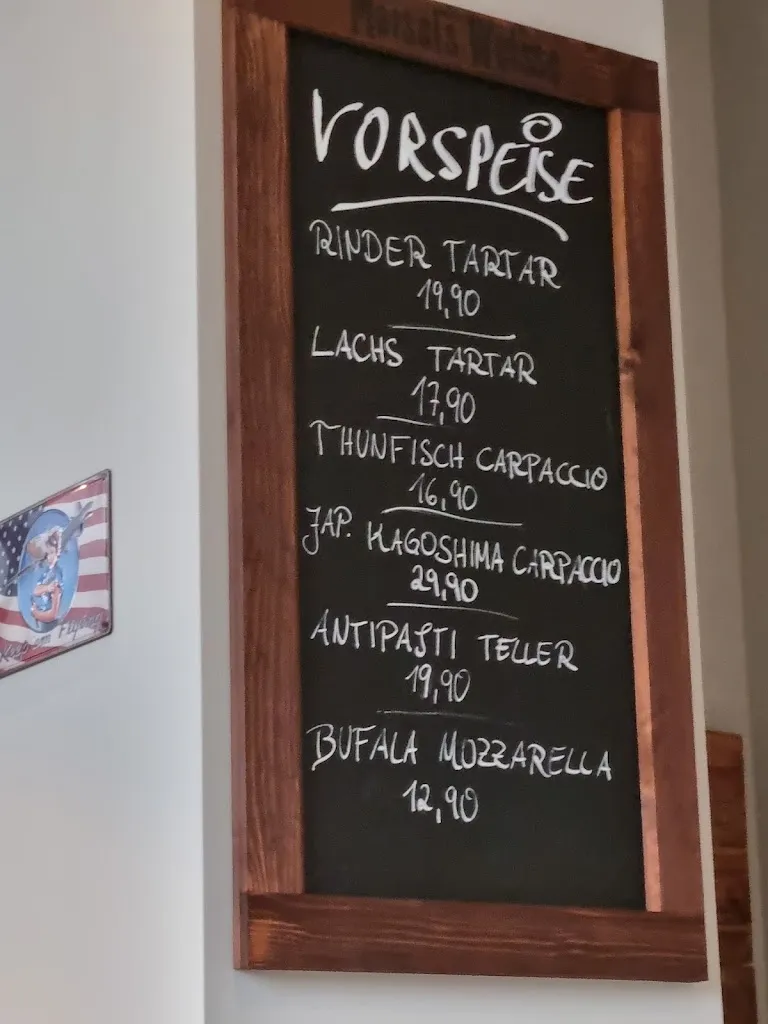 Maisel's Weisse
VORSPEISE
RINDER TARTAR
19,90
LACHS TARTAR
17,90
THUNFISCH CARPACCIO
16,90
JAP. KAGOSHIMA CARPACCIO
29,90
ANTIPASTI TELLER
19,90
BUFALA MOZZARELLA
12,90
Keep em Flying